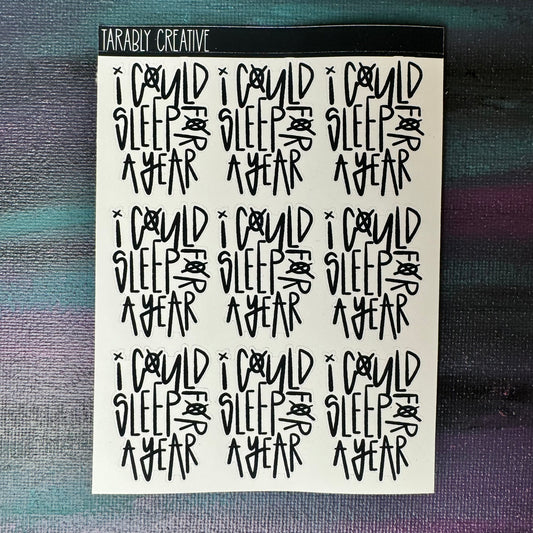 TARABLY CREATIVE
i COULD i COULD i COULD
SLEEP FOR SLEEP FOR SLEEP FOR
A YEAR A YEAR A YEAR
i COULD i COULD i COULD
SLEEP FOR SLEEP FOR SLEEP FOR
A YEAR A YEAR A YEAR
i COULD i COULD i COULD
SLEEP FOR SLEEP FOR SLEEP FOR
A YEAR A YEAR A YEAR